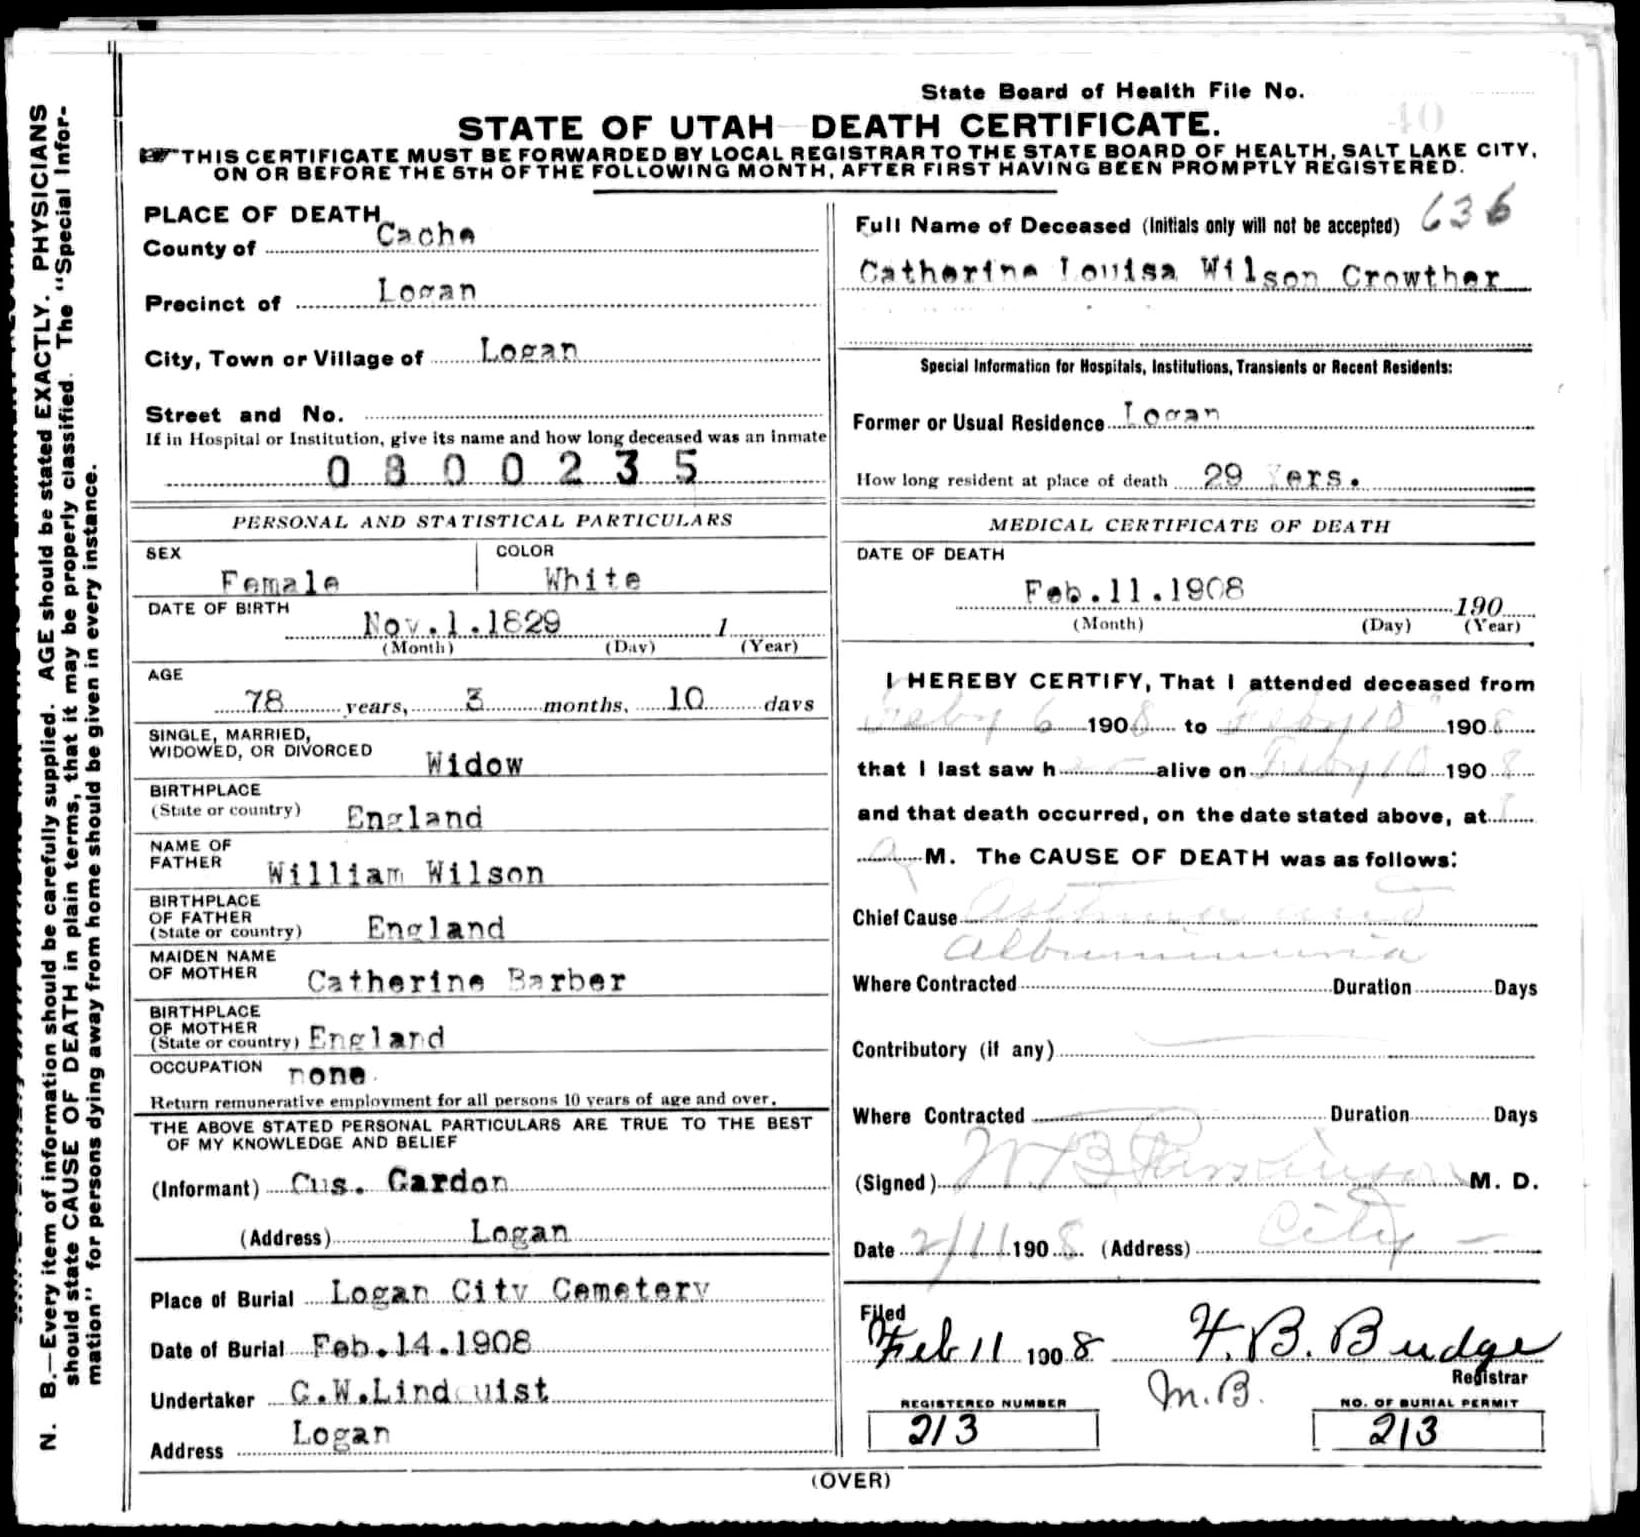 State Board of Health File No.
40
STATE OF UTAH DEATH CERTIFICATE.
THIS CERTIFICATE MUST BE FORWARDED BY LOCAL REGISTRAR TO THE STATE BOARD OF HEALTH, SALT LAKE CITY,
ON OR BEFORE THE 5TH OF THE FOLLOWING MONTH, AFTER FIRST HAVING BEEN PROMPTLY REGISTERED.
N. B.—Every item of information should be carefully supplied. AGE should be stated EXACTLY. PHYSICIANS
should state CAUSE OF DEATH in plain terms, that it may be properly classified. The "Special Infor-
mation" for persons dying away from home should be given in every instance.
PLACE OF DEATH
County of Cache
Precinct of Logan
City, Town or Village of Logan
Street and No.
If in Hospital or Institution, give its name and how long deceased was an inmate
0 8 0 0 2 3 5
PERSONAL AND STATISTICAL PARTICULARS
SEX Female COLOR White
DATE OF BIRTH
Nov.1.1829 1
(Month) (Day) (Year)
AGE
78 years, 3 months, 10 days
SINGLE, MARRIED,
WIDOWED, OR DIVORCED Widow
BIRTHPLACE
(State or country) England
NAME OF
FATHER William Wilson
BIRTHPLACE
OF FATHER
(State or country) England
MAIDEN NAME
OF MOTHER Catherine Barber
BIRTHPLACE
OF MOTHER
(State or country) England
OCCUPATION none.
Return remunerative employment for all persons 10 years of age and over.
THE ABOVE STATED PERSONAL PARTICULARS ARE TRUE TO THE BEST
OF MY KNOWLEDGE AND BELIEF
(Informant) Gus. Gardon
(Address) Logan
Place of Burial Logan City Cemetery
Date of Burial Feb.14.1908
Undertaker C.W.Lindquist
Address Logan
Full Name of Deceased (Initials only will not be accepted) 636
Catherine Louisa Wilson Crowther
Special Information for Hospitals, Institutions, Transients or Recent Residents:
Former or Usual Residence Logan
How long resident at place of death 29 Yers.
MEDICAL CERTIFICATE OF DEATH
DATE OF DEATH
Feb.11.1908 190
(Month) (Day) (Year)
I HEREBY CERTIFY, That I attended deceased from
Feby 6 1908 to Feby 10" 1908
that I last saw h alive on Feby 10 1908
and that death occurred, on the date stated above, at
M. The CAUSE OF DEATH was as follows:
Chief Cause Asthma and
Albuminuria
Where Contracted Duration Days
Contributory (if any)
Where Contracted Duration Days
(Signed) W. B. Parkinson M. D.
Date 2/11 1908 (Address) City
Filed
Feb 11 1908 F. B. Budge
Registrar
M. B.
REGISTERED NUMBER
213
NO. OF BURIAL PERMIT
213
(OVER)